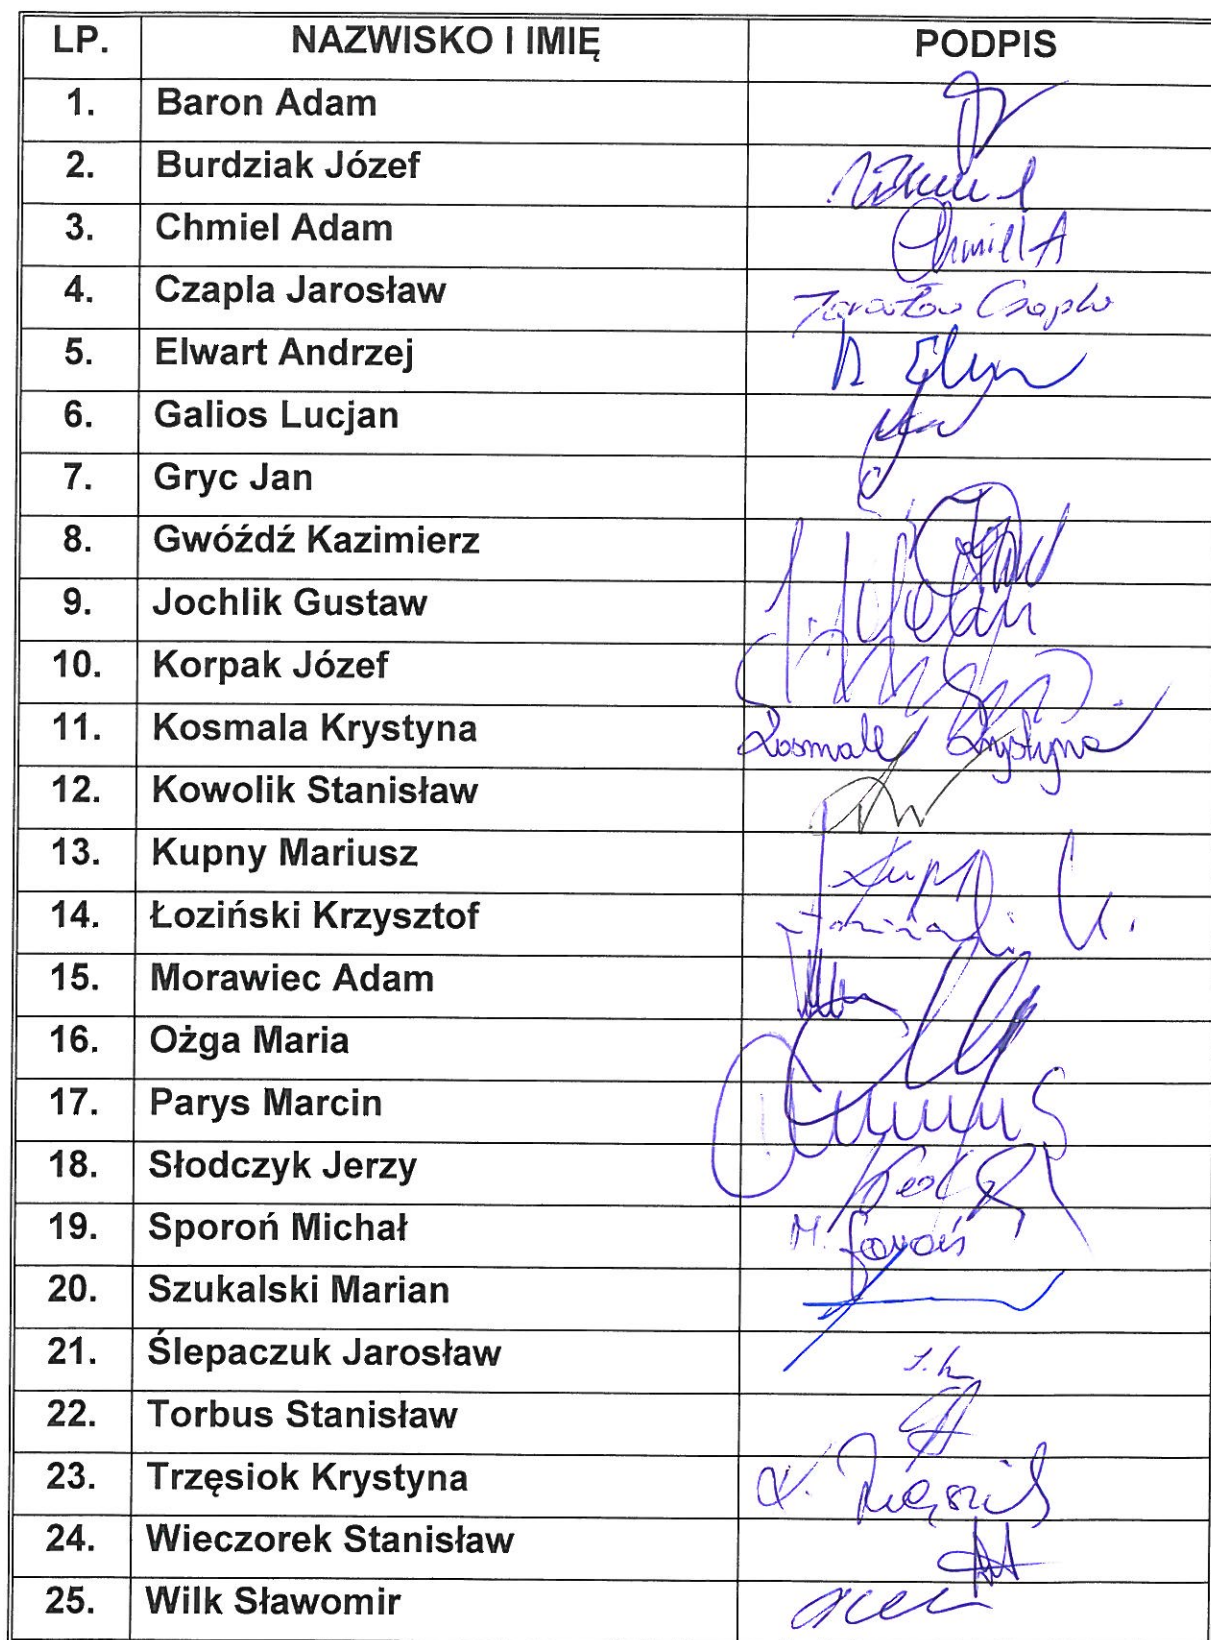 LP. NAZWISKO I IMIĘ PODPIS
1. Baron Adam
2. Burdziak Józef
3. Chmiel Adam Chmiel A
4. Czapla Jarosław Jarosław Czapla
5. Elwart Andrzej
6. Galios Lucjan
7. Gryc Jan
8. Gwóźdź Kazimierz
9. Jochlik Gustaw
10. Korpak Józef
11. Kosmala Krystyna Kosmala Krystyna
12. Kowolik Stanisław
13. Kupny Mariusz
14. Łoziński Krzysztof
15. Morawiec Adam
16. Ożga Maria
17. Parys Marcin
18. Słodczyk Jerzy
19. Sporoń Michał M. Sporoń
20. Szukalski Marian
21. Ślepaczuk Jarosław
22. Torbus Stanisław
23. Trzęsiok Krystyna K. Trzęsiok
24. Wieczorek Stanisław
25. Wilk Sławomir